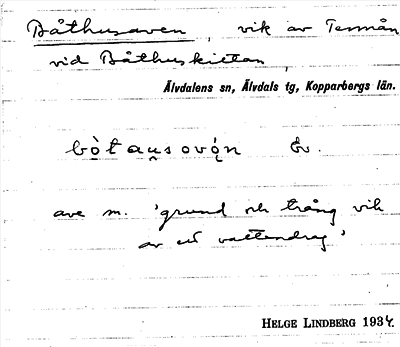 Båthusaven, vik av Ternån
vid Båthuskittan,
Älvdalens sn, Älvdals tg, Kopparbergs län.
bò̩tau̯sovó̩n Äv.
ave m. 'grund och trång vik
av ett vattendrag'
HELGE LINDBERG 1934.